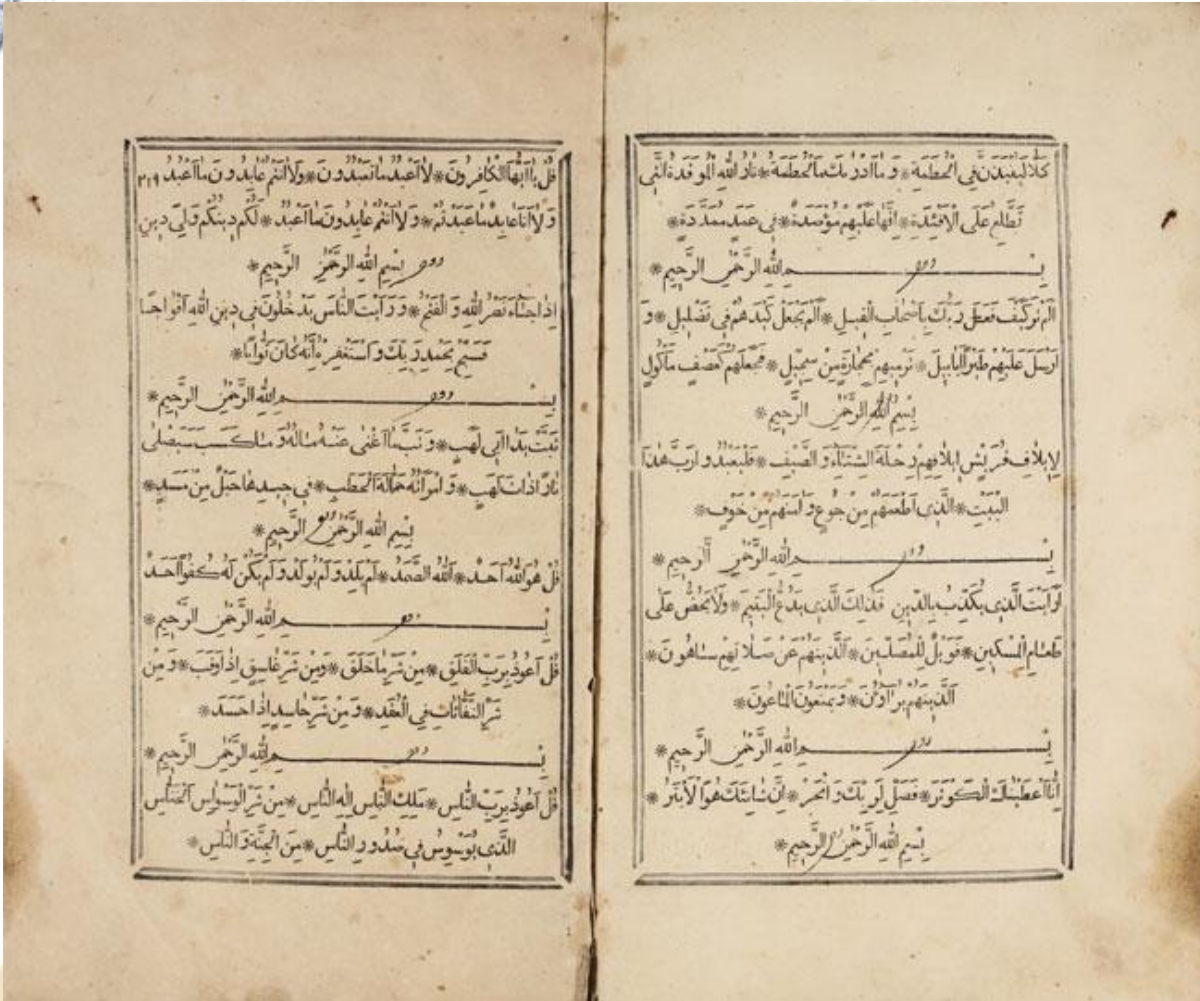 كَلَّا لَيُنْبَذَنَّ فِي الْحُطَمَةِ * وَمَا اَدْرٰىكَ مَا الْحُطَمَةُ * نَارُ اللّٰهِ الْمُوقَدَةُ الَّتِي
تَطَّلِعُ عَلَى الْاَفْئِدَةِ * اِنَّهَا عَلَيْهِمْ مُؤْصَدَةٌ * فِي عَمَدٍ مُمَدَّدَةٍ *
بِسْمِ اللّٰهِ الرَّحْمٰنِ الرَّحِيمِ *
اَلَمْ تَرَ كَيْفَ فَعَلَ رَبُّكَ بِاَصْحَابِ الْفِيلِ * اَلَمْ يَجْعَلْ كَيْدَهُمْ فِي تَضْلِيلٍ * وَ
اَرْسَلَ عَلَيْهِمْ طَيْرًا اَبَابِيلَ * تَرْمِيهِمْ بِحِجَارَةٍ مِنْ سِجِّيلٍ * فَجَعَلَهُمْ كَعَصْفٍ مَأْكُولٍ
بِسْمِ اللّٰهِ الرَّحْمٰنِ الرَّحِيمِ *
لِاِيلَافِ قُرَيْشٍ اِيلَافِهِمْ رِحْلَةَ الشِّتَاءِ وَالصَّيْفِ * فَلْيَعْبُدُوا رَبَّ هٰذَا
الْبَيْتِ * الَّذِي اَطْعَمَهُمْ مِنْ جُوعٍ وَاٰمَنَهُمْ مِنْ خَوْفٍ *
بِسْمِ اللّٰهِ الرَّحْمٰنِ الرَّحِيمِ *
اَرَاَيْتَ الَّذِي يُكَذِّبُ بِالدِّينِ فَذٰلِكَ الَّذِي يَدُعُّ الْيَتِيمَ * وَلَا يَحُضُّ عَلَى
طَعَامِ الْمِسْكِينِ * فَوَيْلٌ لِلْمُصَلِّينَ * اَلَّذِينَ هُمْ عَنْ صَلَاتِهِمْ سَاهُونَ *
اَلَّذِينَ هُمْ يُرَاؤُنَ * وَيَمْنَعُونَ الْمَاعُونَ *
بِسْمِ اللّٰهِ الرَّحْمٰنِ الرَّحِيمِ *
اِنَّا اَعْطَيْنَاكَ الْكَوْثَرَ * فَصَلِّ لِرَبِّكَ وَانْحَرْ * اِنَّ شَانِئَكَ هُوَ الْاَبْتَرُ *
بِسْمِ اللّٰهِ الرَّحْمٰنِ الرَّحِيمِ *
قُلْ يَا اَيُّهَا الْكَافِرُونَ * لَا اَعْبُدُ مَا تَعْبُدُونَ * وَلَا اَنْتُمْ عَابِدُونَ مَا اَعْبُدُ
وَلَا اَنَا عَابِدٌ مَا عَبَدْتُمْ * وَلَا اَنْتُمْ عَابِدُونَ مَا اَعْبُدُ * لَكُمْ دِينُكُمْ وَلِيَ دِينِ
بِسْمِ اللّٰهِ الرَّحْمٰنِ الرَّحِيمِ *
اِذَا جَاءَ نَصْرُ اللّٰهِ وَالْفَتْحُ * وَرَاَيْتَ النَّاسَ يَدْخُلُونَ فِي دِينِ اللّٰهِ اَفْوَاجًا
فَسَبِّحْ بِحَمْدِ رَبِّكَ وَاسْتَغْفِرْهُ اِنَّهُ كَانَ تَوَّابًا *
بِسْمِ اللّٰهِ الرَّحْمٰنِ الرَّحِيمِ *
تَبَّتْ يَدَا اَبِي لَهَبٍ * وَتَبَّ مَا اَغْنٰى عَنْهُ مَالُهُ وَمَا كَسَبَ سَيَصْلٰى
نَارًا ذَاتَ لَهَبٍ * وَامْرَاَتُهُ حَمَّالَةَ الْحَطَبِ * فِي جِيدِهَا حَبْلٌ مِنْ مَسَدٍ *
بِسْمِ اللّٰهِ الرَّحْمٰنِ الرَّحِيمِ *
قُلْ هُوَ اللّٰهُ اَحَدٌ * اَللّٰهُ الصَّمَدُ * لَمْ يَلِدْ وَلَمْ يُولَدْ وَلَمْ يَكُنْ لَهُ كُفُوًا اَحَدٌ
بِسْمِ اللّٰهِ الرَّحْمٰنِ الرَّحِيمِ *
قُلْ اَعُوذُ بِرَبِّ الْفَلَقِ * مِنْ شَرِّ مَا خَلَقَ * وَمِنْ شَرِّ غَاسِقٍ اِذَا وَقَبَ * وَمِنْ
شَرِّ النَّفَّاثَاتِ فِي الْعُقَدِ * وَمِنْ شَرِّ حَاسِدٍ اِذَا حَسَدَ *
بِسْمِ اللّٰهِ الرَّحْمٰنِ الرَّحِيمِ *
قُلْ اَعُوذُ بِرَبِّ النَّاسِ * مَلِكِ النَّاسِ اِلٰهِ النَّاسِ * مِنْ شَرِّ الْوَسْوَاسِ الْخَنَّاسِ
الَّذِي يُوَسْوِسُ فِي صُدُورِ النَّاسِ * مِنَ الْجِنَّةِ وَالنَّاسِ *